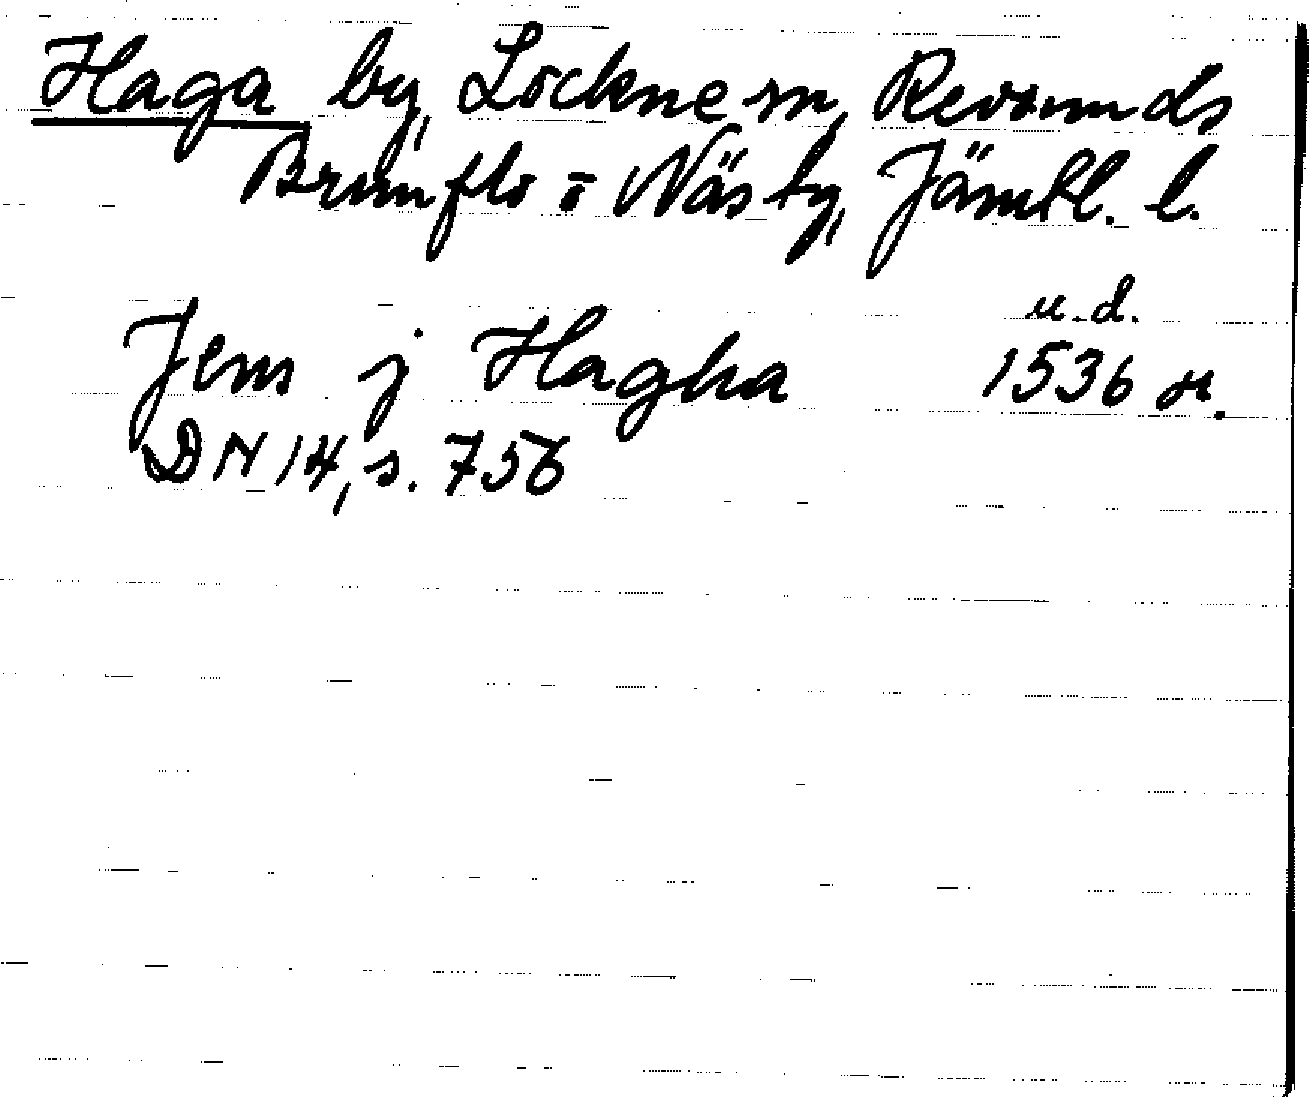 Haga by, Lockne sn, Revsunds
Brunflo o Näs tg, Jämtl. l.
u.d.
Jens j Hagha 1536 or.
DN 14, s. 756